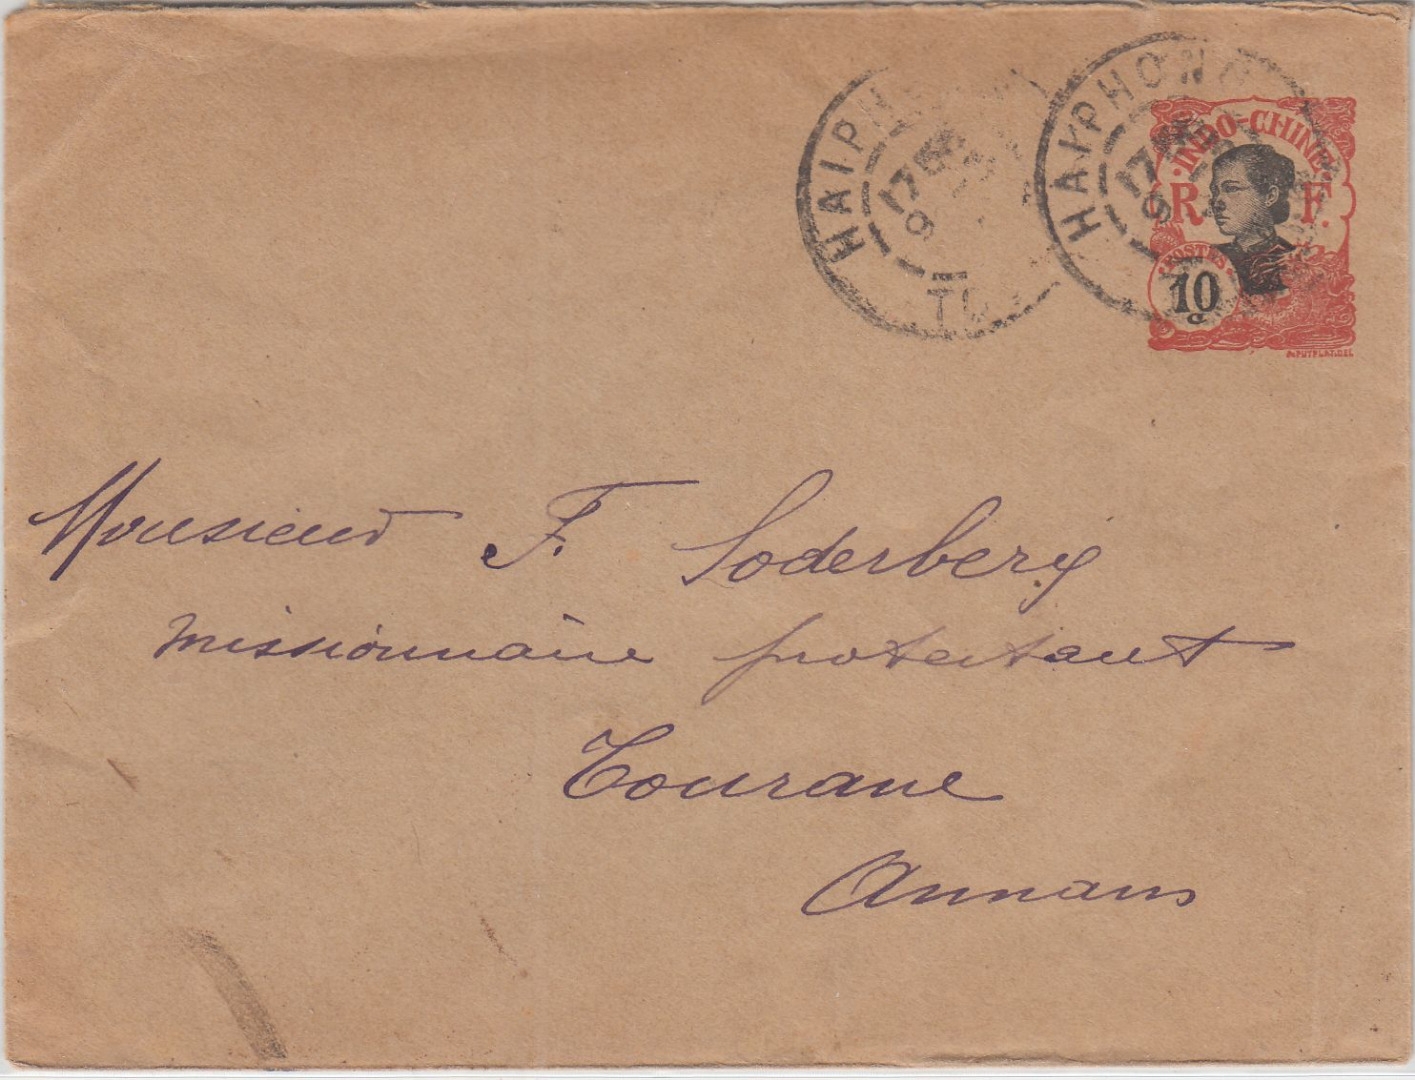 HAIPH
17
9
TO
HAYPHONG
17
9
INDO-CHINE
R F.
POSTES
10
c
Monsieur F. Soderberg
missionnaire protestant
Tourane
Annam